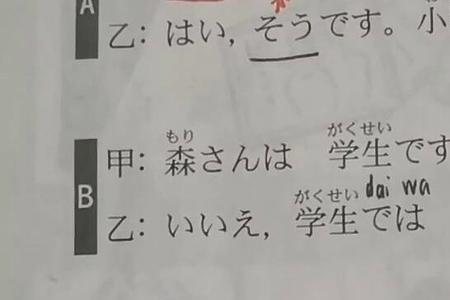 A
乙：はい，そうです。小
もり がくせい
甲：森さんは 学生です
B
がくせい dai wa
乙：いいえ，学生では